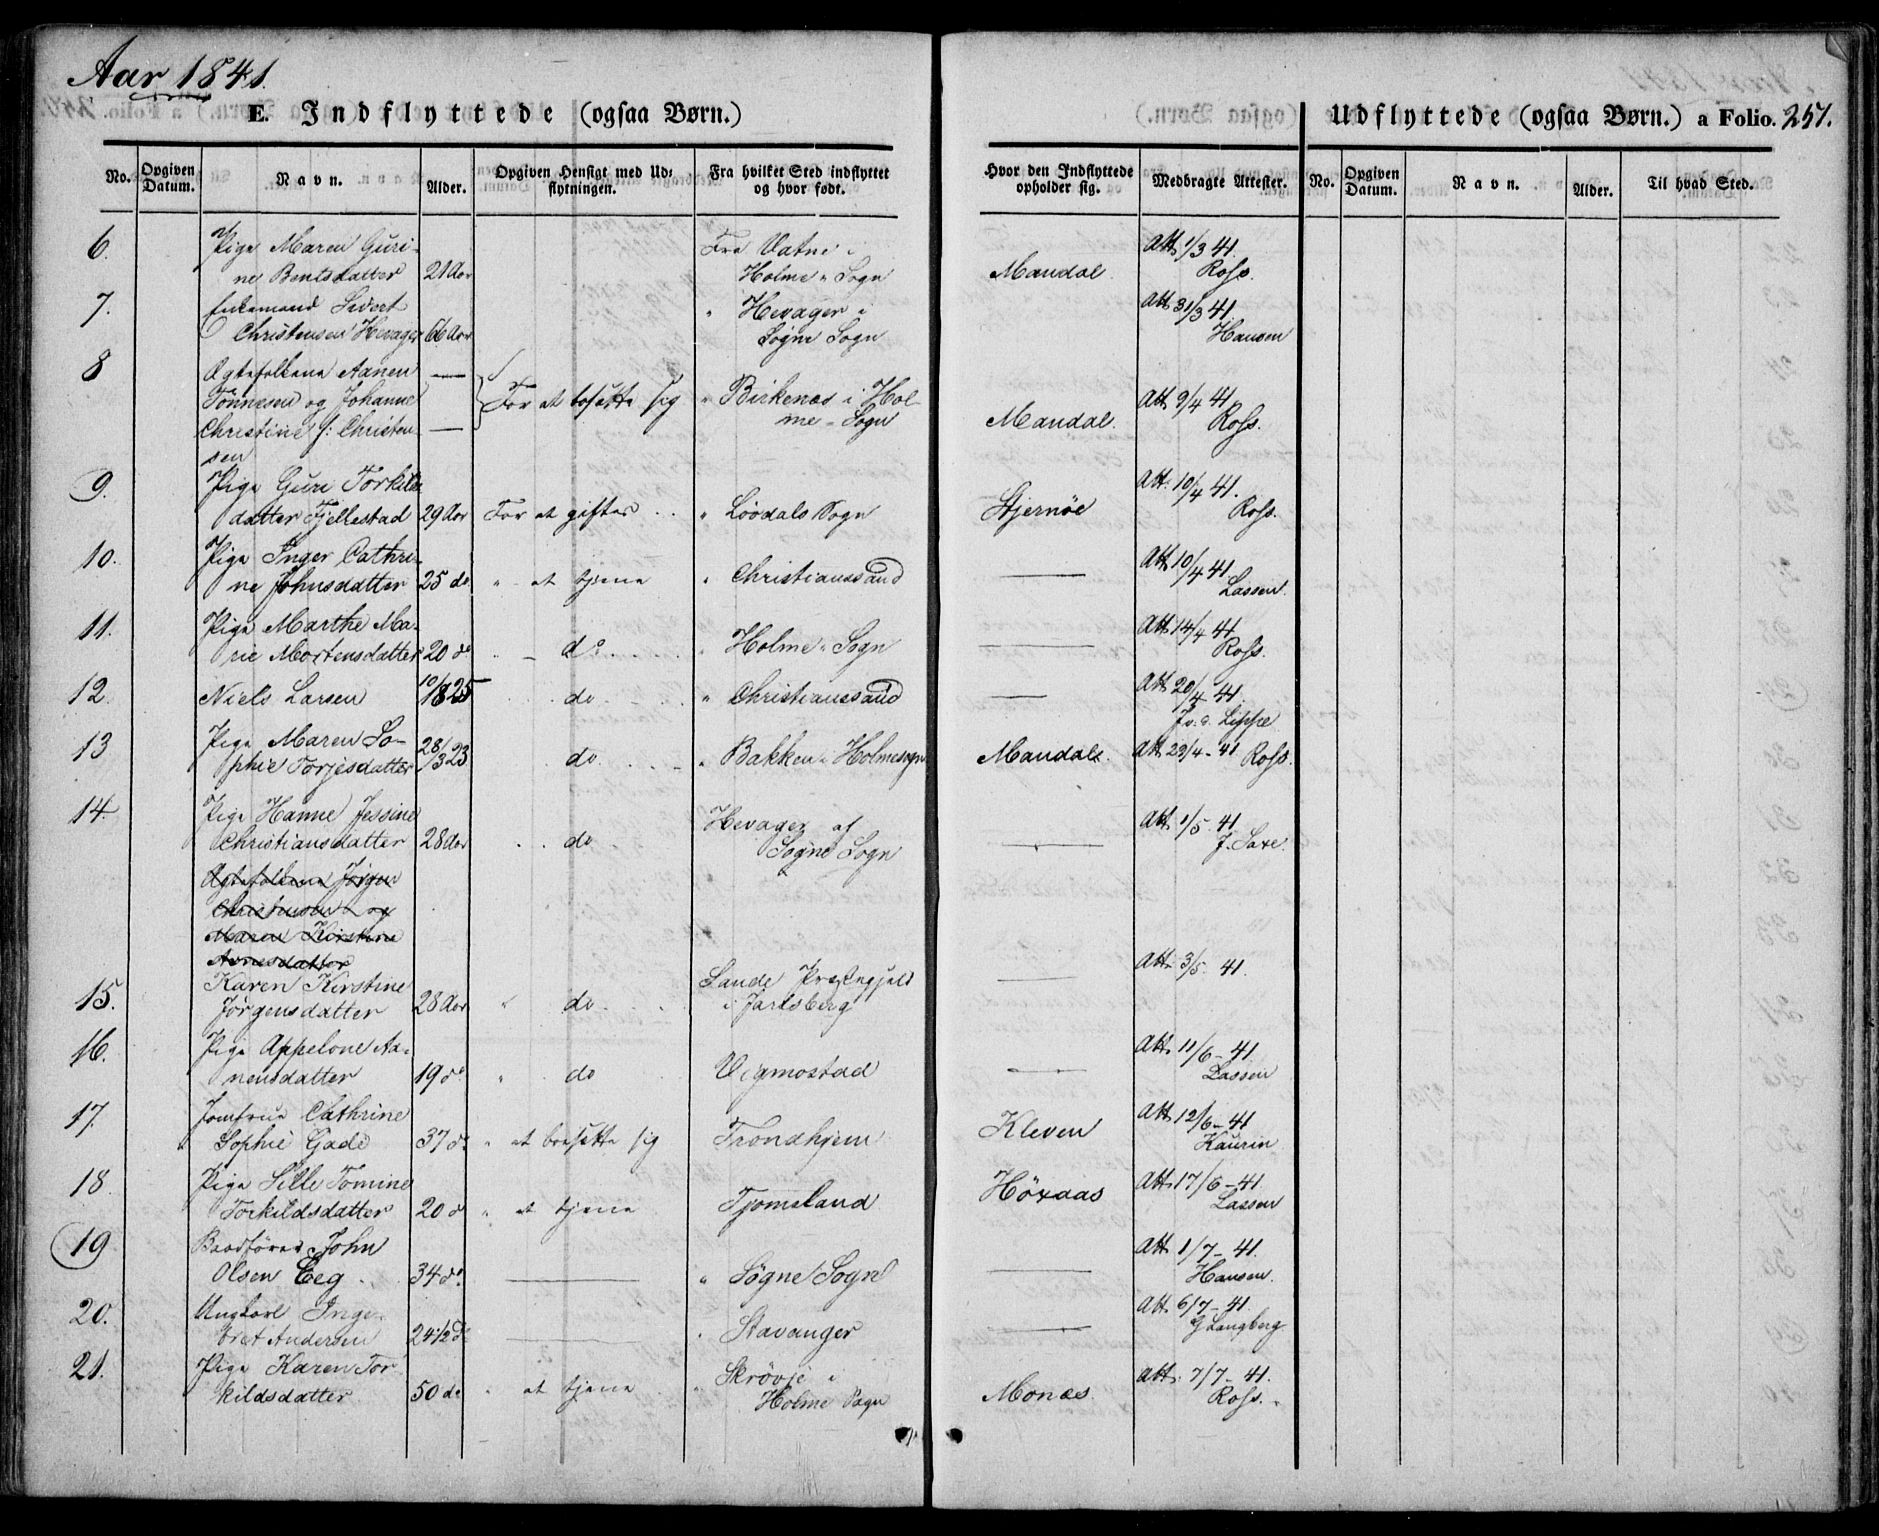 Aar 1841.
E. Indflyttede (ogsaa Børn.)
Udflyttede (ogsaa Børn.) a Folio. 251.
No. Opgiven Datum. Navn. Alder. Opgiven Hensigt med Udflytningen. Fra hvilket Sted indflyttet og hvor født. Hvor den Indflyttede opholder sig. Medbragte Attester. No. Opgiven Datum. Navn. Alder. Til hvad Sted.
6. Pige Maren Guri- Fra Vatne i Att. 1/3 41.
ne Bentsdatter 21 Aar Holme Sogn Mandal. Ross.
7. Enkemand Sivert " Hevager i Att. 31/3 41.
Christensen Hevager 66 Aar Søgne Sogn Hansen
8 Ægtefolkene Aanen —
Tönnesen og Johanne For at bosætte sig " Birkenæs i Hol- Att. 9/4 41
Christine f: Christen- — me - Sogn Mandal. Ross.
sen
9. Pige Guri Torkilds- Att. 10/4 41.
datter Fjellestad 29 Aar For at giftes " Lösdals Sogn Skjernöe Ross.
10. Pige Inger Cathri- Att 10/4 41.
ne Johnsdatter 25 do " - at tjene " Christianssand — Lassen.
11. Pige Marthe Ma- Att 14/4 41
rie Mortensdatter 20 do do " Holme Sogn — Ross.
12. Niels Larsen 10/1825 do " Christianssand — Att 20/4 - 41
Lippe
13 Pige Maren So- 28/3 23 Att 29/4 - 41 Ross.
phie Torjesdatter do " Bakken i Holmesogn Mandal.
14. Pige Hanne Jessine Hevager af Att. 1/5 41
Christiansdatter 28 Aar do Søgne Sogn — J. Saxe.
Ægtefolkene Jörgen
Christensen og
Maren Kirstine
Aanesdatter
Karen Kirstine Sande Præstegjeld Att. 3/5 41
15. Jørgensdatter 28 Aar " do i Jarlsberg —
16. Pige Appelone Aa- Att. 11/6 - 41.
nensdatter 19 do " do Vigmostad — Lassen
17. Jomfrue Cathrine Att. 12/6 - 41
Sophie Gade 37 do " at bosætte sig Trondhjem Kleven Kaurin
18 Pige Sille Tomine Att. 17/6 - 41.
Torkildsdatter 20 do " at tjene Tjomsland Höxaas Lassen
19 Baadförer John Att. 1/7 - 41.
Olsen Eeg 34 do — " Søgne Sogn — Hansen.
20. Ungkarl Inge- Att. 6/7 - 41.
bret Andersen 24 1/2 do — " Stavanger — G Langberg.
21. Pige Karen Tor- Skrövje i Att. 7/7 - 41.
kildsdatter 50 do " at tjene " Holme Sogn Monæs. Ross.